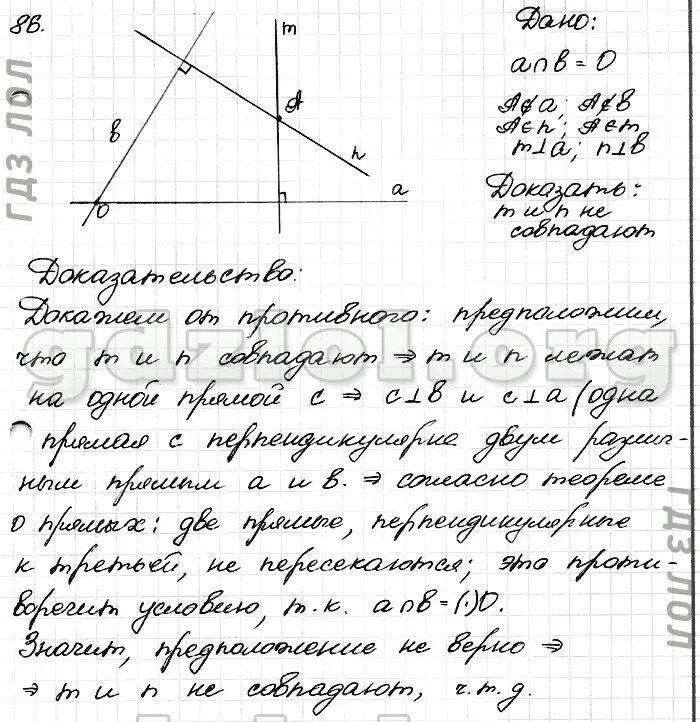 86.
m
A
в
n
a
O
Дано:
a∩в = O
A∉a; A∉в
A∈n; A∈m
m⊥a; n⊥в
Доказать:
m и n не
совпадают
Доказательство:
Докажем от противного: предположим,
что m и n совпадают ⇒ m и n лежат
на одной прямой c ⇒ c⊥в и c⊥a (одна
прямая c перпендикулярна двум различ-
ным прямым a и в. ⇒ согласно теореме
о прямых: две прямые, перпендикулярные
к третьей, не пересекаются; это проти-
воречит условию, т.к. a∩в=(·)O.
Значит, предположение не верно ⇒
⇒ m и n не совпадают, ч.т.д.
ГДЗ ЛОЛ
gdzlol.org
ГДЗ ЛОЛ